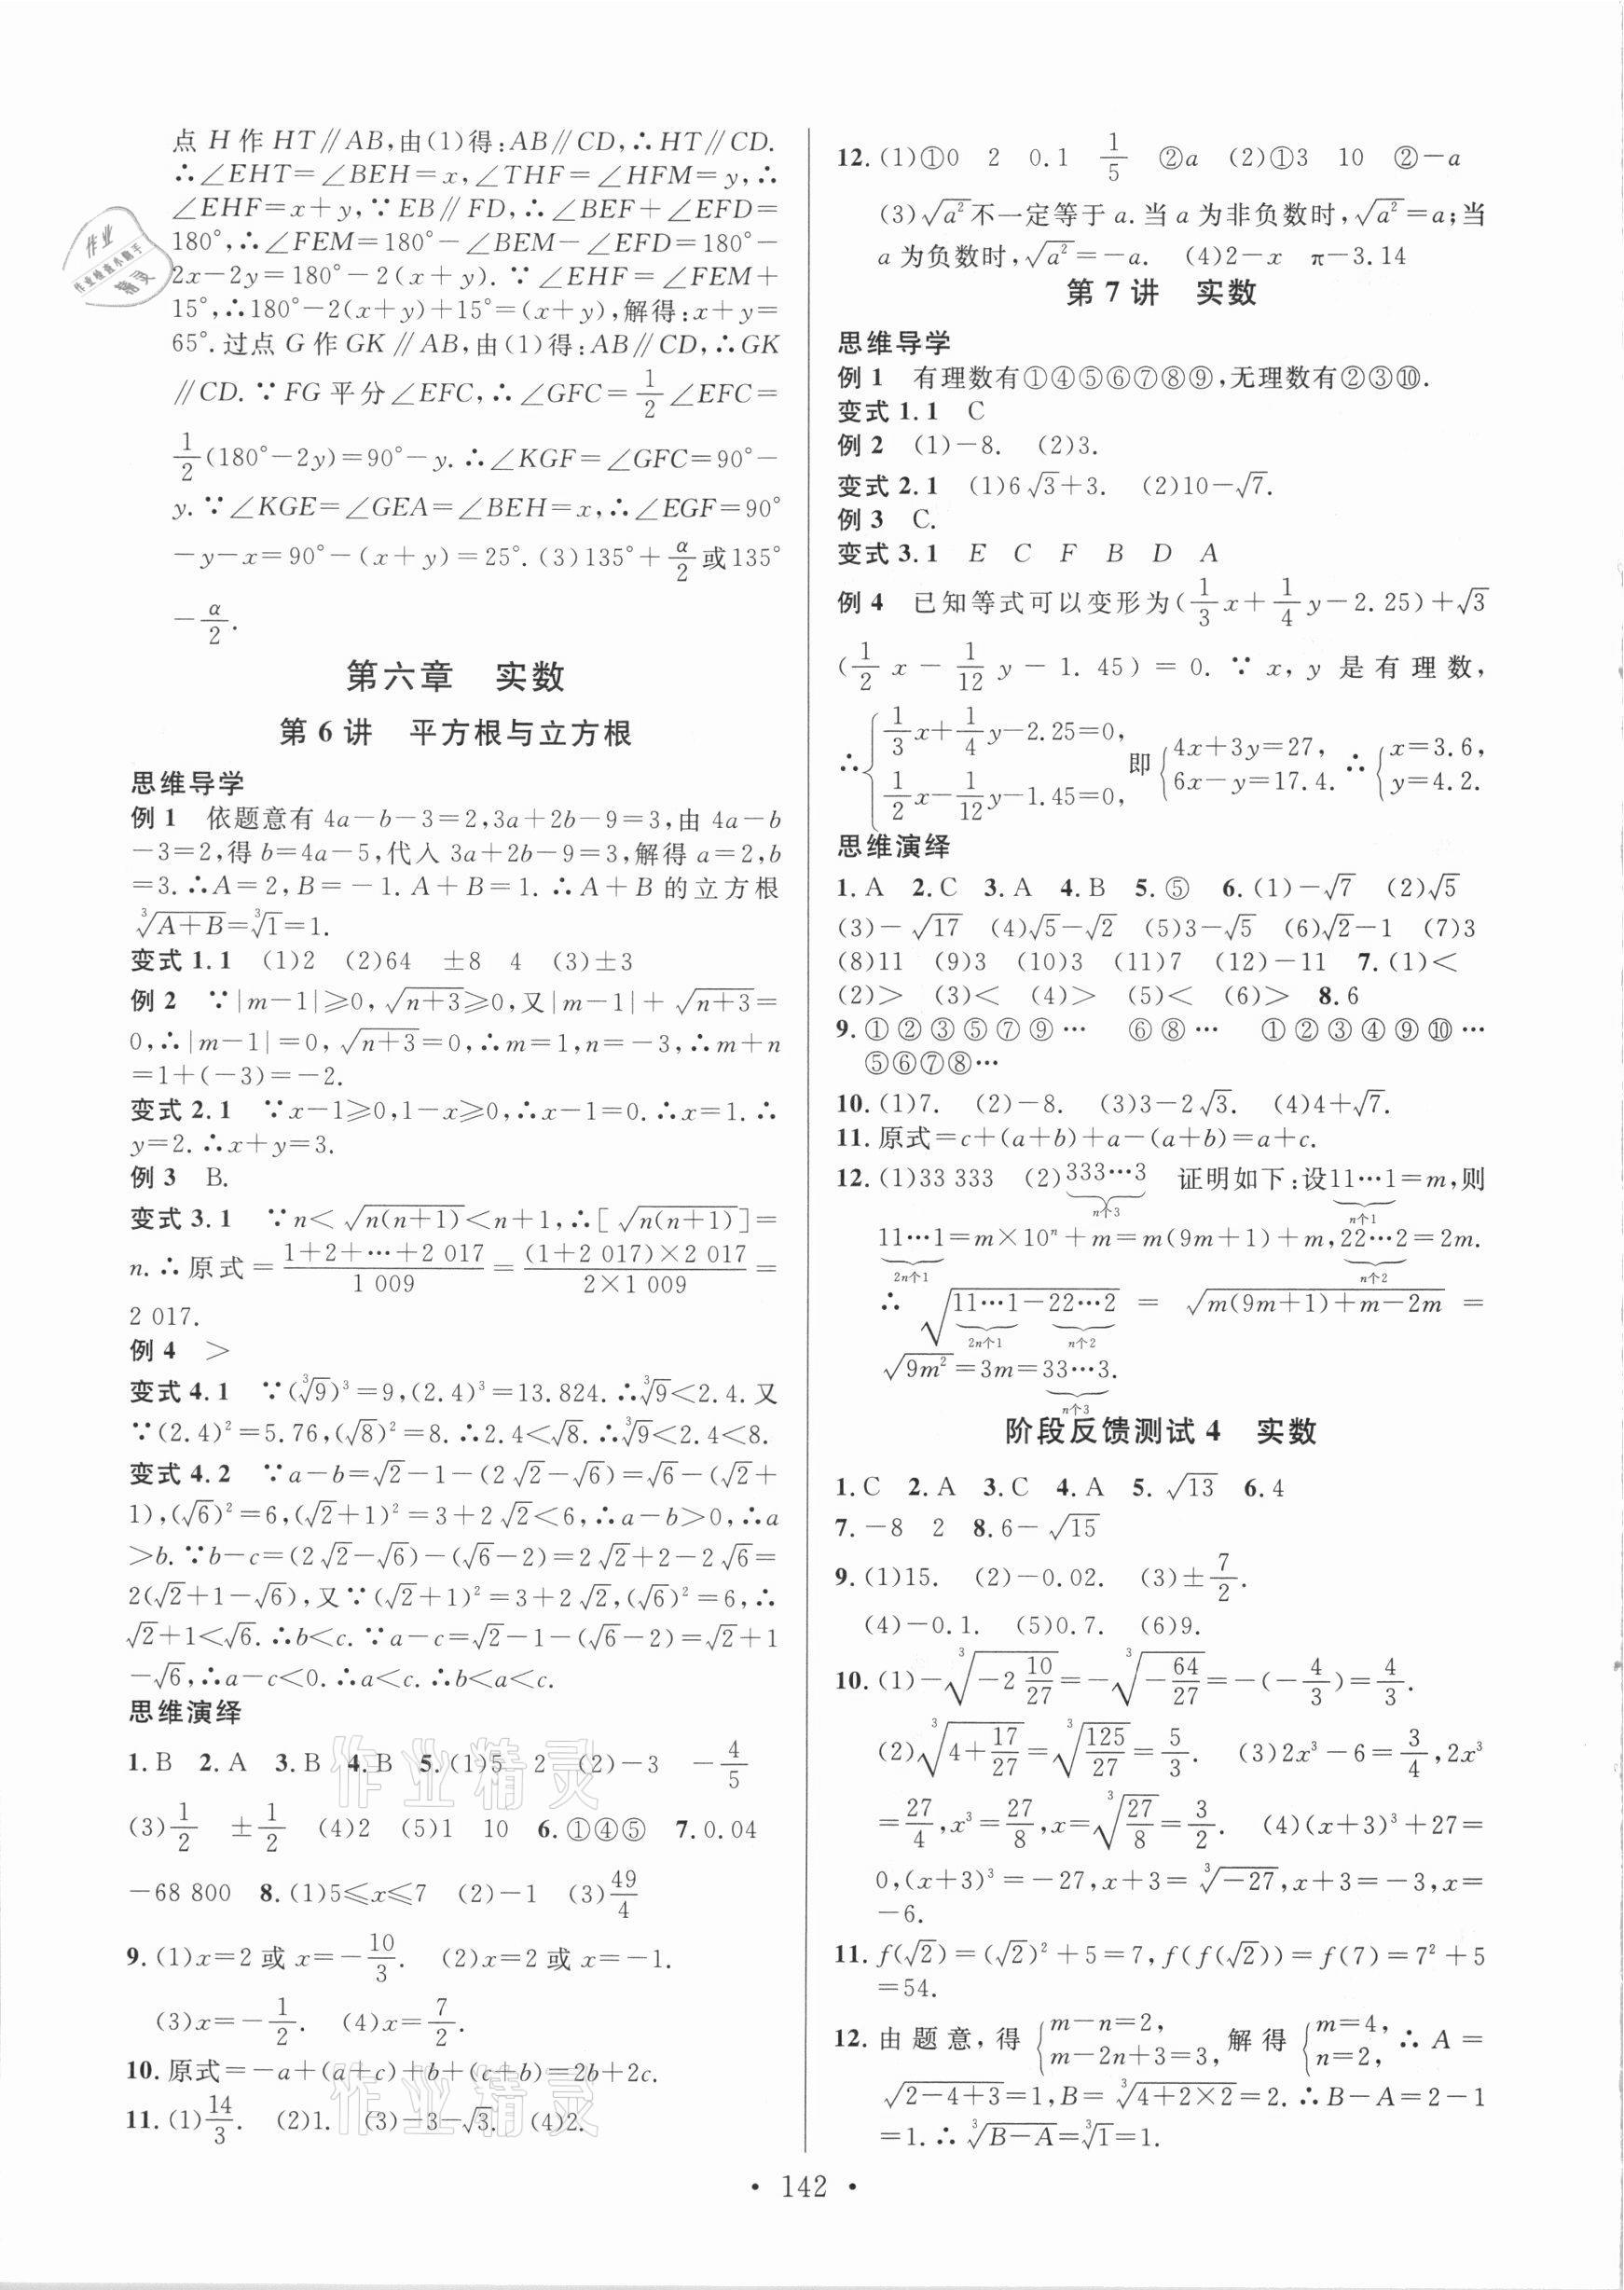 点 H 作 HT∥AB,由(1)得:AB∥CD,∴HT∥CD.
∴∠EHT=∠BEH=x,∠THF=∠HFM=y,∴
∠EHF=x+y,∵EB∥FD,∴∠BEF+∠EFD=
180°,∴∠FEM=180°-∠BEM-∠EFD=180°-
2x-2y=180°-2(x+y).∵∠EHF=∠FEM+
15°,∴180°-2(x+y)+15°=(x+y),解得:x+y=
65°.过点 G 作 GK∥AB,由(1)得:AB∥CD,∴GK
∥CD.∵FG 平分∠EFC,∴∠GFC=1/2∠EFC=
1/2(180°-2y)=90°-y.∴∠KGF=∠GFC=90°-
y.∵∠KGE=∠GEA=∠BEH=x,∴∠EGF=90°
-y-x=90°-(x+y)=25°.(3)135°+α/2或135°
-α/2.
第六章 实数
第 6 讲 平方根与立方根
思维导学
例 1 依题意有 4a-b-3=2,3a+2b-9=3,由 4a-b
-3=2,得 b=4a-5,代入 3a+2b-9=3,解得 a=2,b
=3.∴A=2,B=-1.A+B=1.∴A+B 的立方根
∛(A+B)=∛1=1.
变式 1.1 (1)2 (2)64 ±8 4 (3)±3
例 2 ∵|m-1|⩾0,√(n+3)⩾0,又|m-1|+√(n+3)=
0,∴|m-1|=0,√(n+3)=0,∴m=1,n=-3,∴m+n
=1+(-3)=-2.
变式 2.1 ∵x-1⩾0,1-x⩾0,∴x-1=0.∴x=1.∴
y=2.∴x+y=3.
例 3 B.
变式 3.1 ∵n<√(n(n+1))<n+1,∴[√(n(n+1))]=
n.∴原式=(1+2+…+2 017)/(1 009)=((1+2 017)×2 017)/(2×1 009)=
2 017.
例 4 >
变式 4.1 ∵(∛9)³=9,(2.4)³=13.824.∴∛9<2.4.又
∵(2.4)²=5.76,(√8)²=8.∴2.4<√8.∴∛9<2.4<8.
变式 4.2 ∵a-b=√2-1-(2√2-√6)=√6-(√2+
1),(√6)²=6,(√2+1)²=3+2√2<6,∴a-b>0,∴a
>b.∵b-c=(2√2-√6)-(√6-2)=2√2+2-2√6=
2(√2+1-√6),又∵(√2+1)²=3+2√2,(√6)²=6,∴
√2+1<√6.∴b<c.∵a-c=√2-1-(√6-2)=√2+1
-√6,∴a-c<0.∴a<c.∴b<a<c.
思维演绎
1.B 2.A 3.B 4.B 5.(1)5 2 (2)-3 -4/5
(3)1/2 ±1/2 (4)2 (5)1 10 6.①④⑤ 7.0.04
-68 800 8.(1)5⩽x⩽7 (2)-1 (3)49/4
9.(1)x=2 或 x=-10/3. (2)x=2 或 x=-1.
(3)x=-1/2. (4)x=7/2.
10.原式=-a+(a+c)+b+(c+b)=2b+2c.
11.(1)14/3. (2)1. (3)-3-√3. (4)2.
12.(1)①0 2 0.1 1/5 ②a (2)①3 10 ②-a
(3)√a²不一定等于 a.当 a 为非负数时,√a²=a;当
a 为负数时,√a²=-a. (4)2-x π-3.14
第 7 讲 实数
思维导学
例 1 有理数有①④⑤⑥⑦⑧⑨,无理数有②③⑩.
变式 1.1 C
例 2 (1)-8. (2)3.
变式 2.1 (1)6√3+3. (2)10-√7.
例 3 C.
变式 3.1 E C F B D A
例 4 已知等式可以变形为(1/3x+1/4y-2.25)+√3
(1/2x-1/12y-1.45)=0.∵x,y 是有理数,
∴{1/3x+1/4y-2.25=0, 1/2x-1/12y-1.45=0, 即{4x+3y=27, 6x-y=17.4. ∴{x=3.6, y=4.2.
思维演绎
1.A 2.C 3.A 4.B 5.⑤ 6.(1)-√7 (2)√5
(3)-√17 (4)√5-√2 (5)3-√5 (6)√2-1 (7)3
(8)11 (9)3 (10)3 (11)7 (12)-11 7.(1)<
(2)> (3)< (4)> (5)< (6)> 8.6
9.①②③⑤⑦⑨… ⑥⑧… ①②③④⑨⑩…
⑤⑥⑦⑧…
10.(1)7. (2)-8. (3)3-2√3. (4)4+√7.
11.原式=c+(a+b)+a-(a+b)=a+c.
12.(1)33 333 (2)333…3 证明如下:设11…1=m,则
n个3 n个1
11…1=m×10ⁿ+m=m(9m+1)+m,22…2=2m.
2n个1 n个2
∴ √(11…1-22…2) = √(m(9m+1)+m-2m) =
2n个1 n个2
√(9m²)=3m=33…3.
n个3
阶段反馈测试 4 实数
1.C 2.A 3.C 4.A 5.√13 6.4
7.-8 2 8.6-√15
9.(1)15. (2)-0.02. (3)±7/2.
(4)-0.1. (5)0.7. (6)9.
10.(1)-∛(-2 10/27)=-∛(-64/27)=-(-4/3)=4/3.
(2)∛(4+17/27)=∛(125/27)=5/3. (3)2x³-6=3/4,2x³
=27/4,x³=27/8,x=∛(27/8)=3/2. (4)(x+3)³+27=
0,(x+3)³=-27,x+3=∛(-27),x+3=-3,x=
-6.
11.f(√2)=(√2)²+5=7,f(f(√2))=f(7)=7²+5
=54.
12.由题意,得{m-n=2, m-2n+3=3, 解得{m=4, n=2, ∴A=
√(2-4+3)=1,B=∛(4+2×2)=2.∴B-A=2-1
=1.∴∛(B-A)=∛1=1.
• 142 •
作业
作业检查小助手
精灵
作业精灵
作业精灵